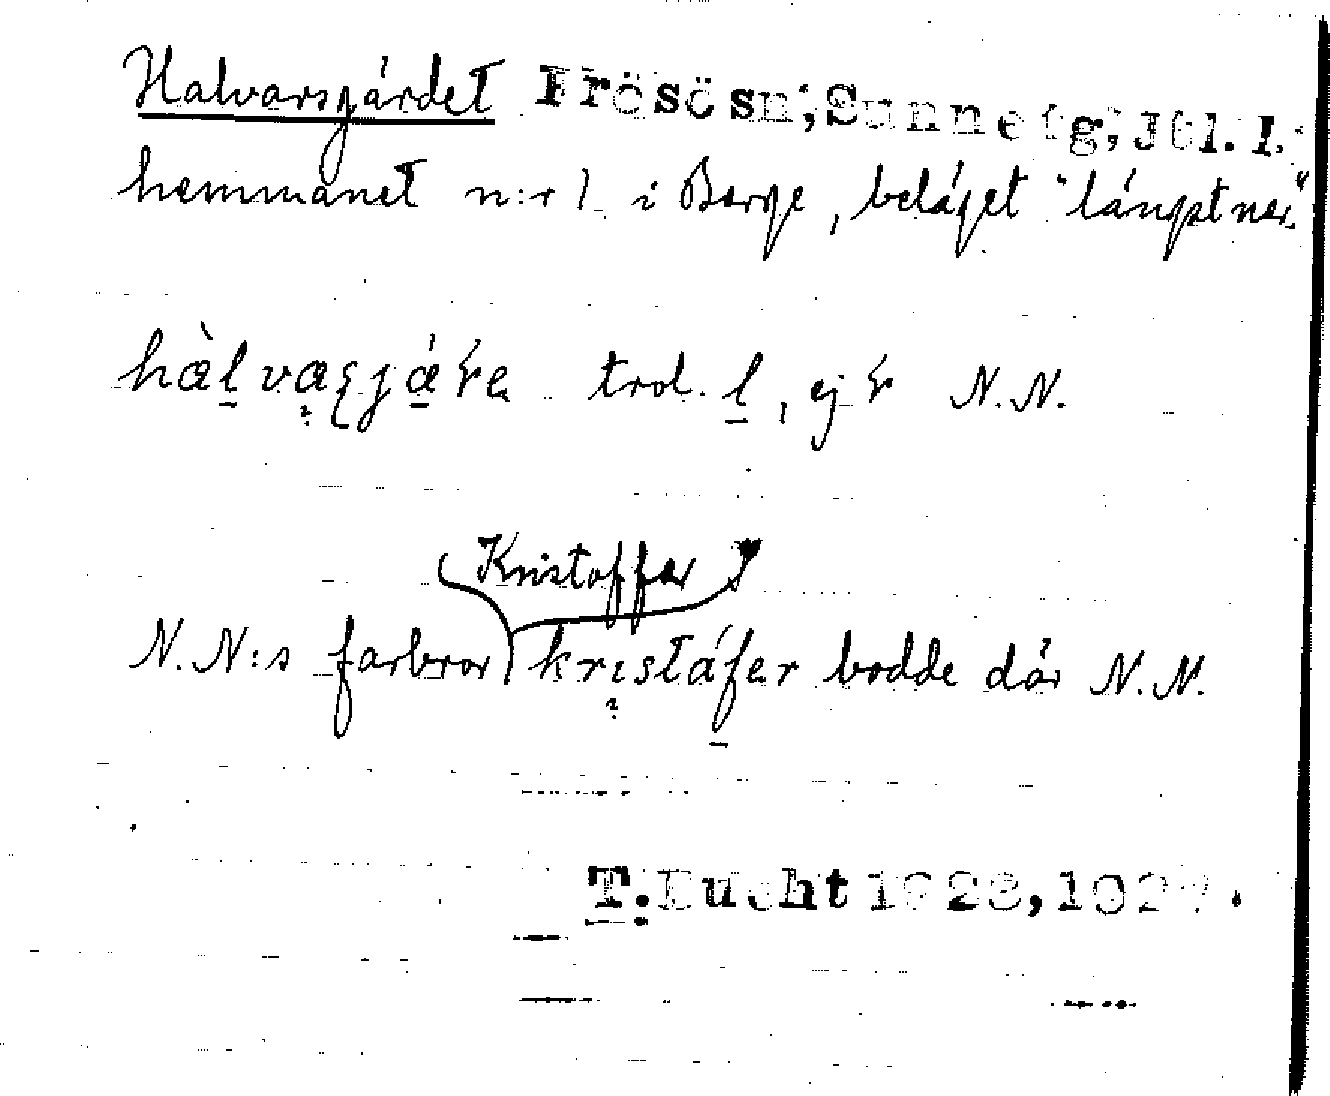 Halvarsgärdet Frösösn; Sunne tg, Jtl. l.
hemmanet n:r 1 i Berge, beläget "längst ner"
hàlvaʂjáɽe trol. l, ej ɽ N.N.
Kristoffer
N.N:s farbror kristáfer bodde där N.N.
T. Bucht 1928, 1927.